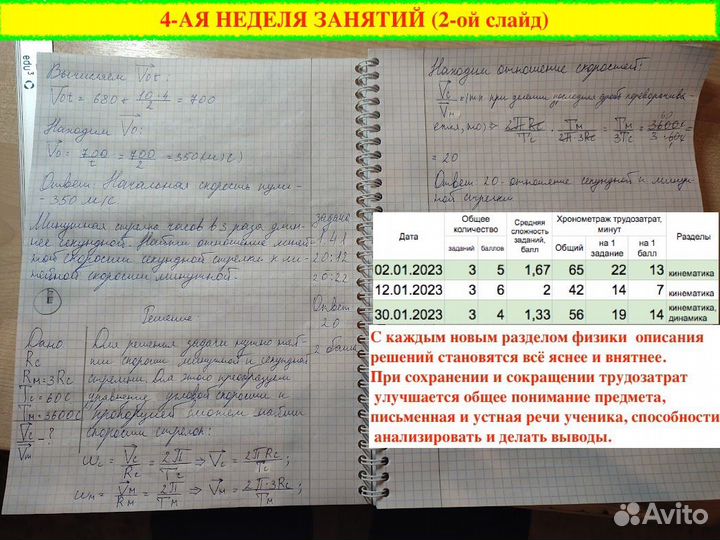 4-АЯ НЕДЕЛЯ ЗАНЯТИЙ (2-ой слайд)
edu
Вычисляем V₀t:
V₀t = 680 + 10·4/2 = 700
Находим V₀:
V₀ = 700/t = 700/2 = 350 (м/с)
Ответ: Начальная скорость пули -
- 350 м/с
Минутная стрелка часов в 3 раза длин-
нее секундной. Найти отношение линей-
ной скорости секундной стрелки к ли-
нейной скорости минутной.
задача
1.41
20:12
20:22
Ответ
20
2 балла
Решение:
Дано
Rc
Rм=3Rc
Tc=60с
Tм=3600с
Vc/Vм - ?
Для решения задачи нужно най-
ти скорости минутной и секундной
стрелки. Для этого преобразуем
уравнение угловой скорости и
пропорцией сможем найти
скорости стрелок:
ωc = Vc/Rc = 2П/Tc ⇒ Vc = 2ПRc/Tc;
ωм = Vм/Rм = 2П/Tм ⇒ Vм = 2П·3Rc/Tм;
Находим отношение скоростей:
Vc/Vм = (т.к при делении последняя дробь переворачива-
ется, то) ⇒ 2ПRc/Tc · Tм/2П·3Rc = Tм/3Tc = 3600с/3·60с =
= 20
Ответ: 20 - отношение секундной к минут-
ной стрелки
Дата Общее количество Средняя сложность заданий, балл Хронометраж трудозатрат, минут Разделы
заданий баллов Общий на 1 задание на 1 балл
02.01.2023 3 5 1,67 65 22 13 кинематика
12.01.2023 3 6 2 42 14 7 кинематика
30.01.2023 3 4 1,33 56 19 14 кинематика, динамика
С каждым новым разделом физики описания
решений становятся всё яснее и внятнее.
При сохранении и сокращении трудозатрат
улучшается общее понимание предмета,
письменная и устная речи ученика, способности
анализировать и делать выводы.
Avito